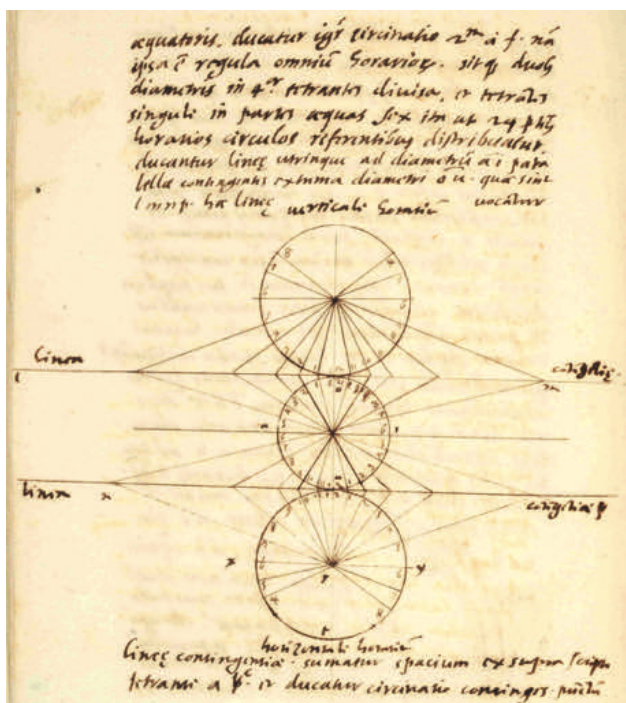 æquatoris. ducatur igr̄ circinatio 2ᵐ à f. nā
ipsa ē regula omniū horarioꝝ. sitqꝫ duob
diametris in 4ᵒʳ tetrantes divisa, et tetrātes
singuli in partes æquas sex ita ut 24
horarios circulos referentibus distribuatur
ducantur lineę utrinque ad diametrū a i para
lellæ contingentis extima diametri o u. quæ sint
l m n p. hæ lineę vocātur
verticale horariū
linea contigētię
l m
a i
linea n contigētiæ p
x r y
t
horizontale horariū
lineę contingentiæ. sumatur spacium ex supra scripto
tetrante a et ducatur circinatio contingēs punctū